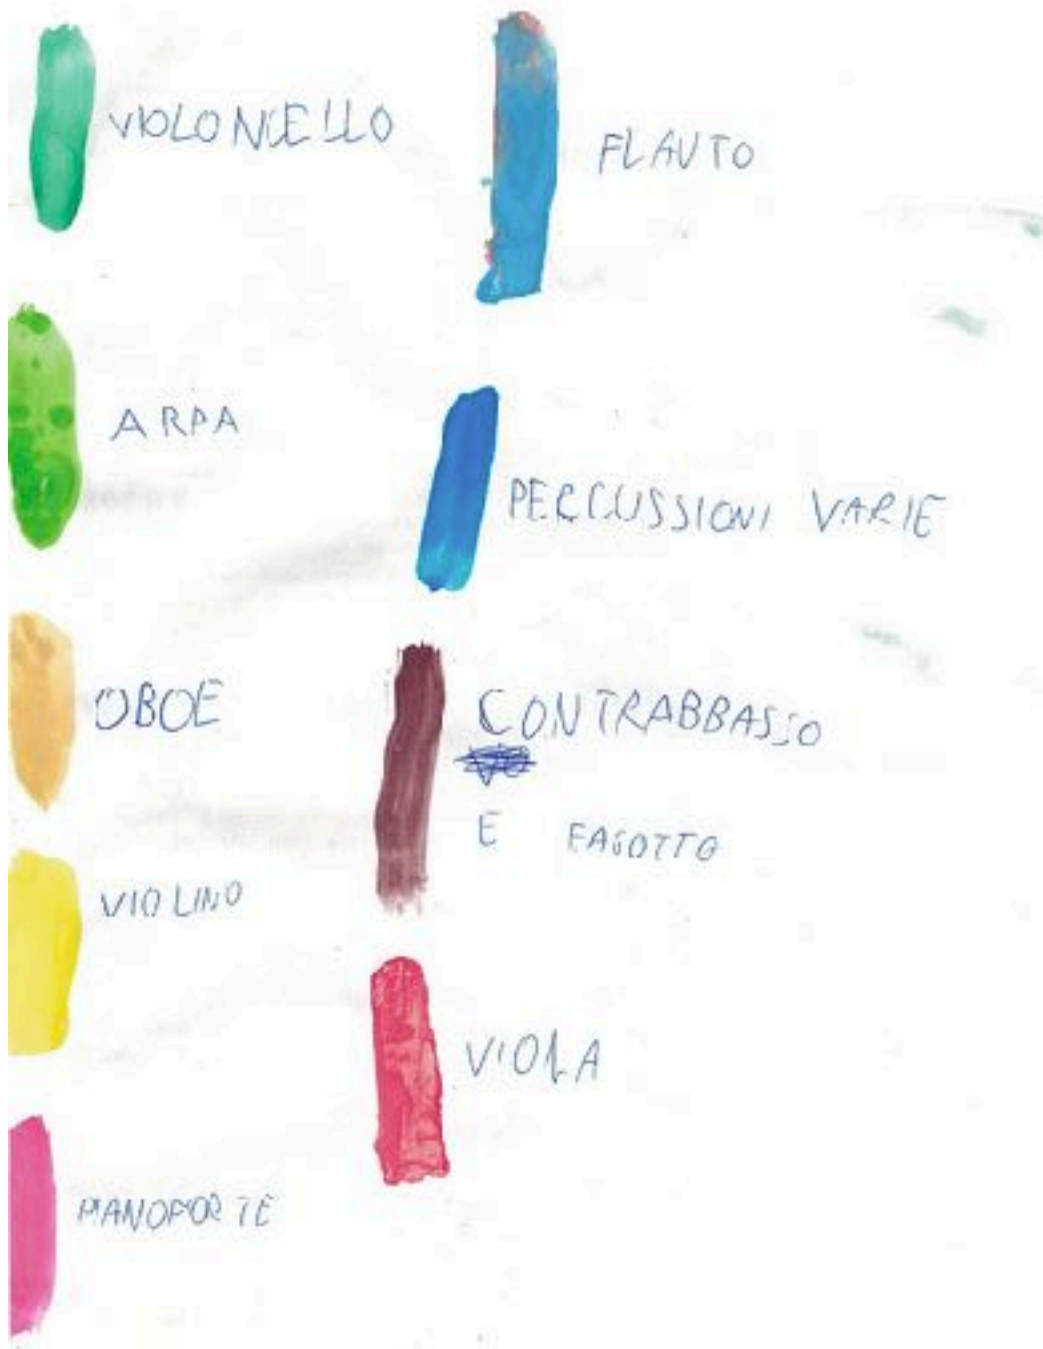 VIOLONCELLO
ARPA
OBOE
VIOLINO
PIANOFORTE
FLAUTO
PERCUSSIONI VARIE
CONTRABBASSO
E FAGOTTO
VIOLA